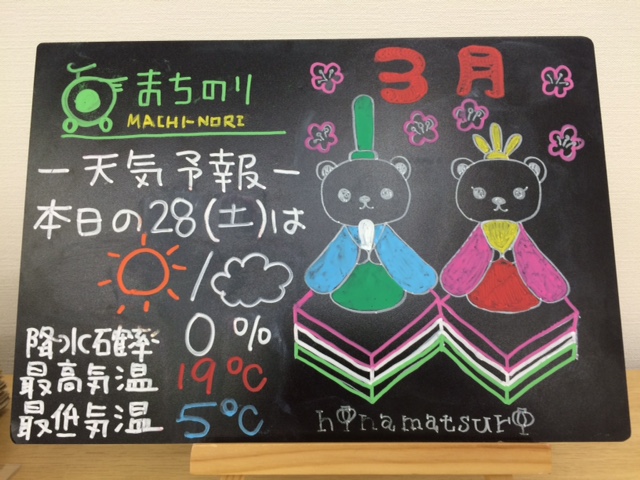 まちのり
MACHI-NORI
3月
－天気予報－
本日の28(土)は
/
降水確率 0%
最高気温 19℃
最低気温 5℃
hinamatsuri